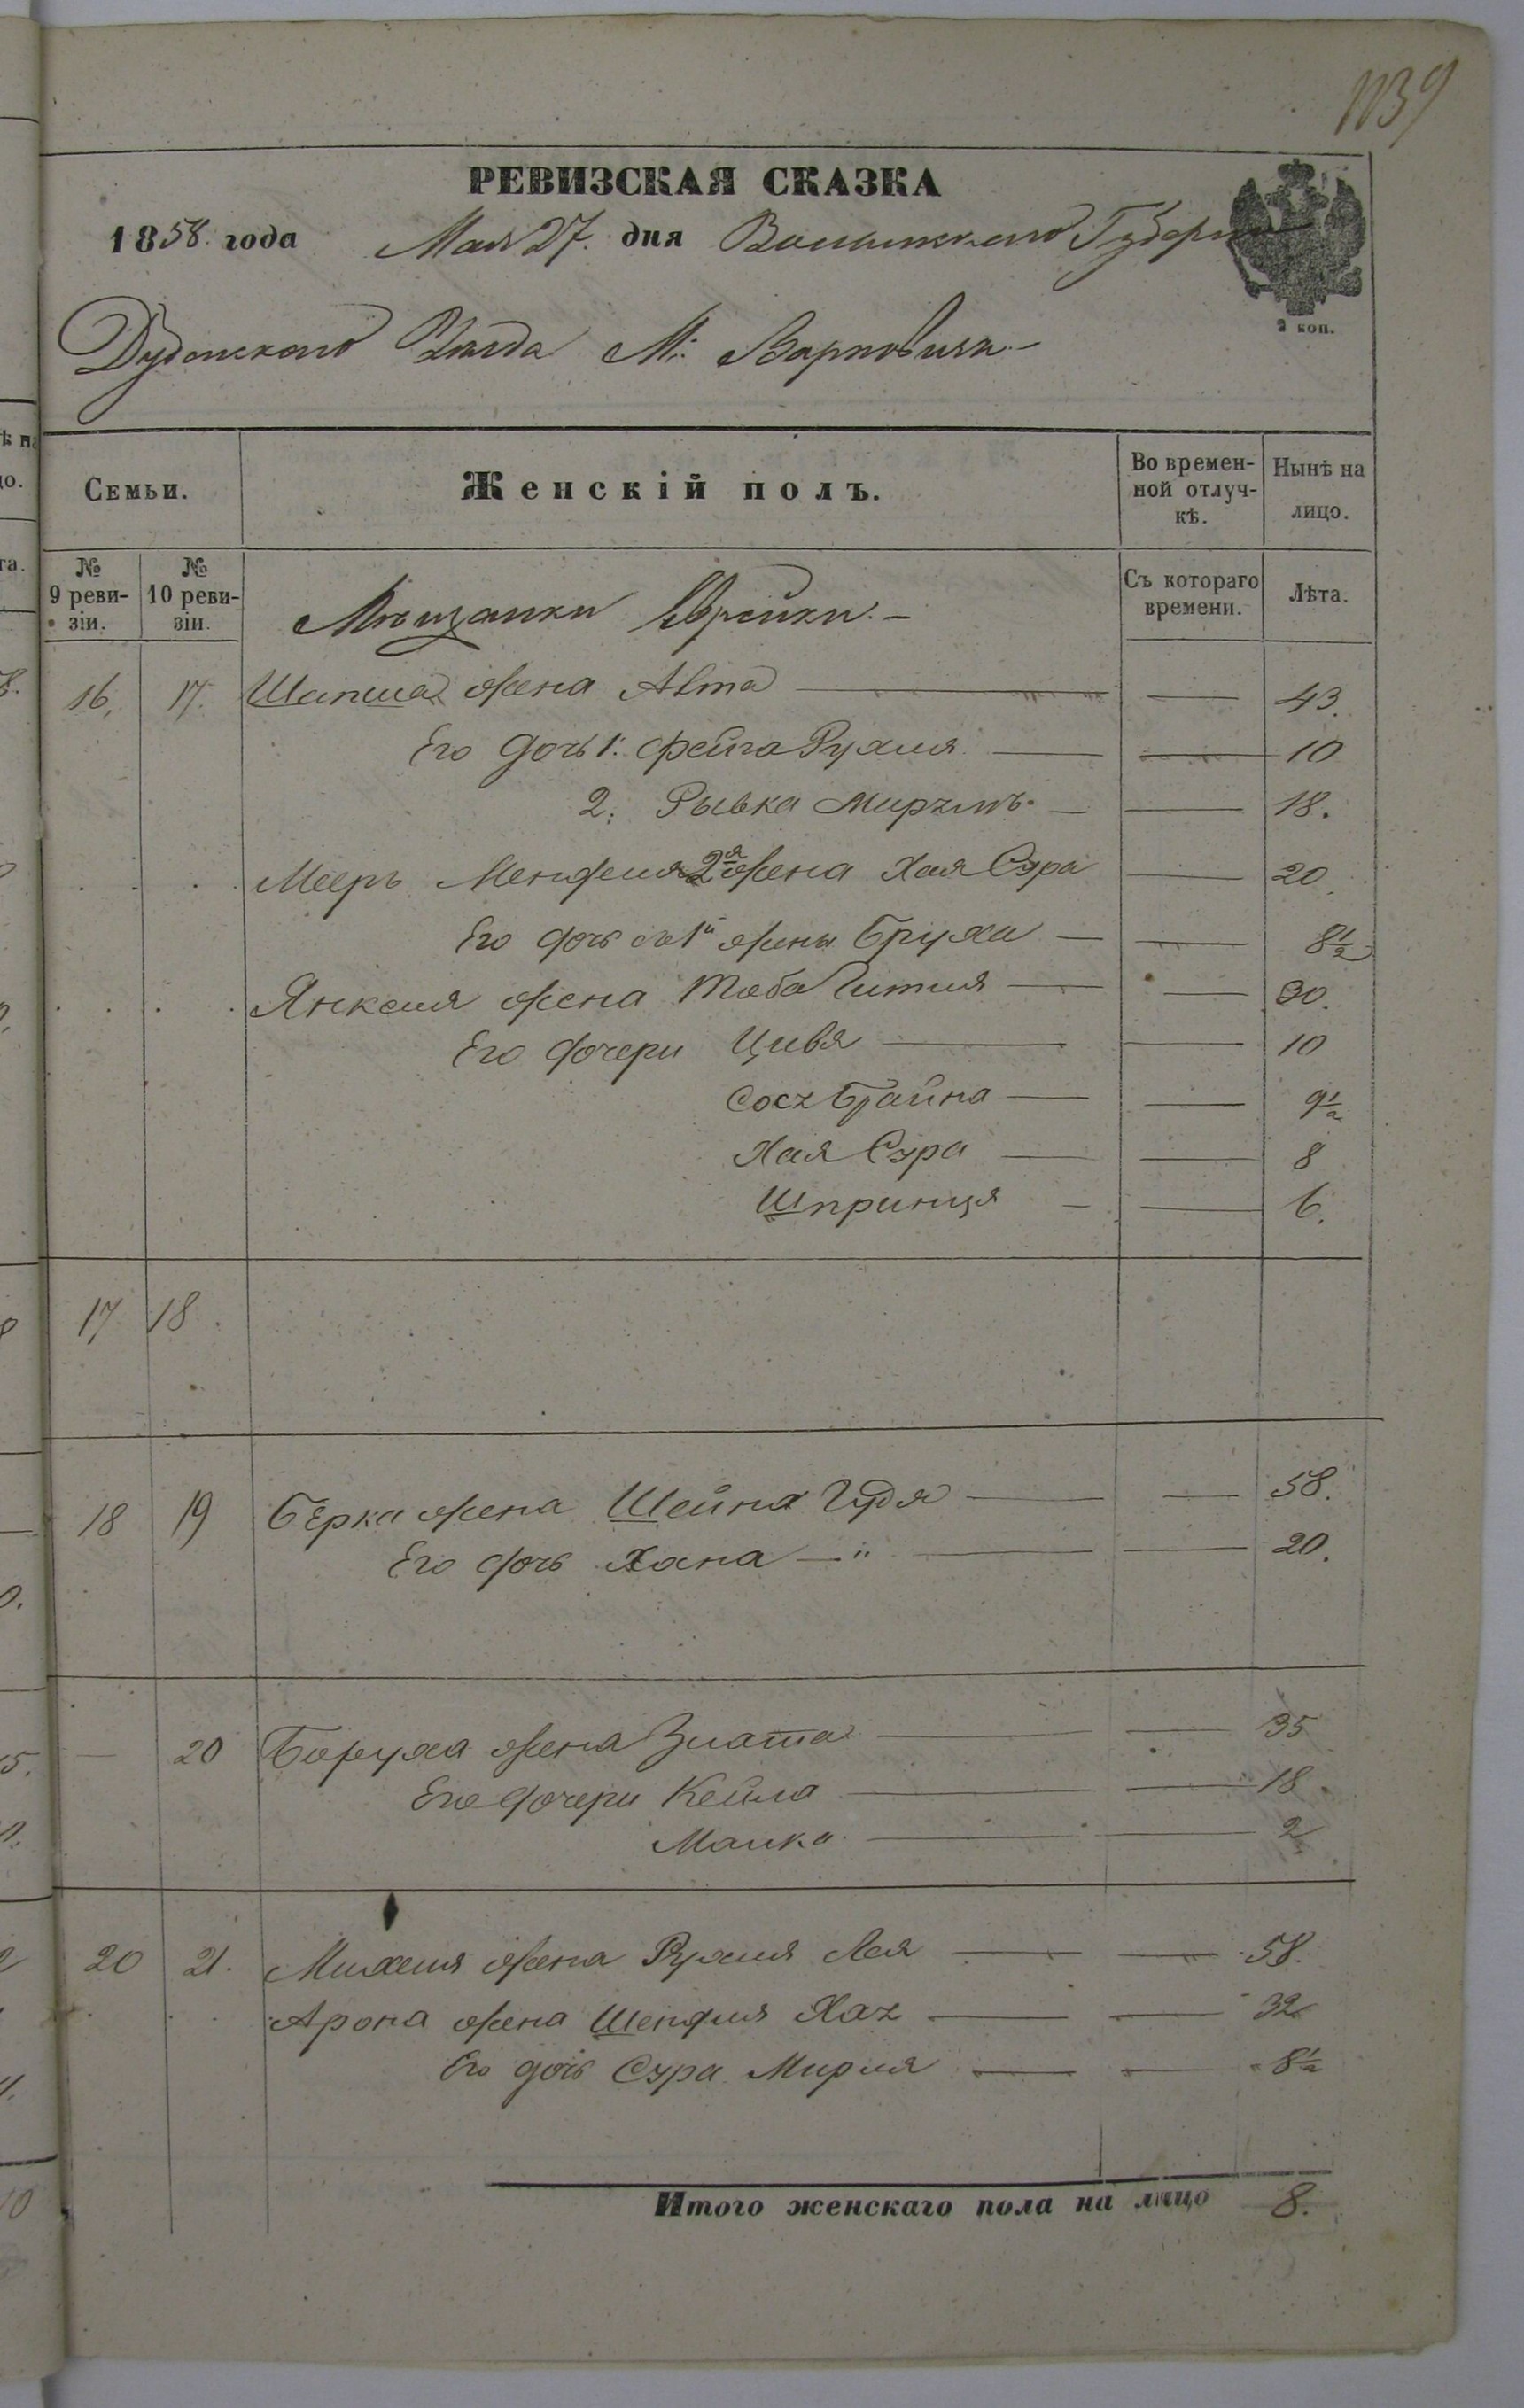 1139
РЕВИЗСКАЯ СКАЗКА
1858. года Мая 27. дня Волынской Губерніи
2 коп.
Дубенского Уѣзда М. Варковичи
Семьи. Женскій полъ. Во времен-ной отлуч-кѣ. Нынѣ на лицо.
№ 9 реви-зіи. № 10 реви-зіи. Съ котораго времени. Лѣта.
Мѣщанки Еврейки. –
16. 17. Шапша жена — 43.
Его дочь 1. Фейга Рухля — — 10
2. Рывка — — 18.
Мееръ Менделя 2я жена Хая Сура — 20
Его дочь 1й жены Бруха — — 8½
Янкеля жена Тоба Гитля — — 30.
Его дочери Цивя — — 10
Сося Брайна — — 9½
Хая Сура — — 8
Шпринця — — 6.
17 18.
18 19 Берка жена Шейна Гудя — — 58.
Его дочь Хана — " — — 20.
— 20 Боруха жена Злата — — 35
Его дочери Кейла — — 18
Малка — — 2
20 21. Михеля жена Рухля Лея — — 58.
Арона жена Шендля Хая — — 32
Его дочь Сура Мирля — — 8½
Итого женскаго пола на лицо 8.